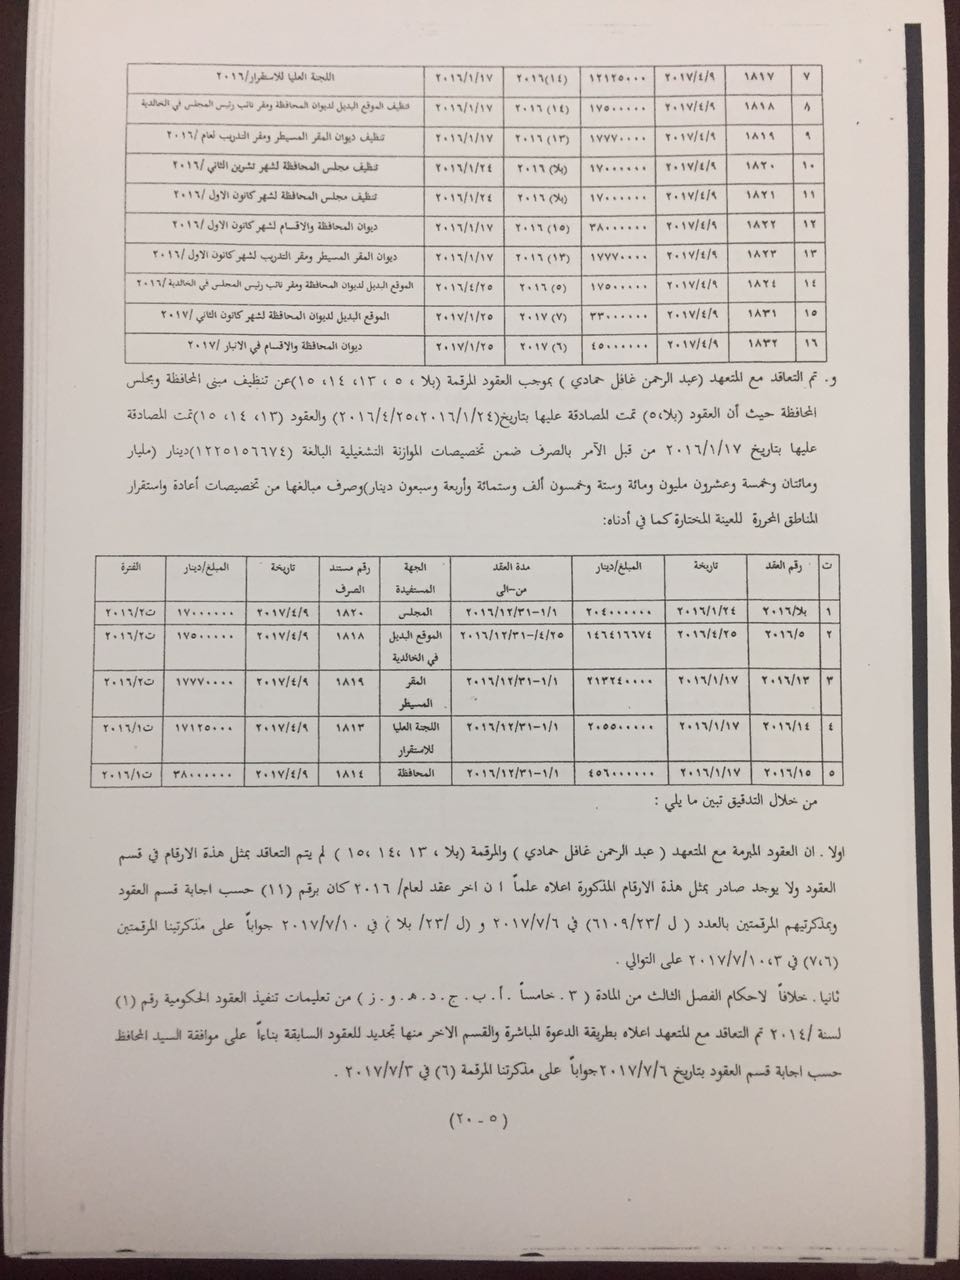 ٧ ١٨١٧ ٢٠١٧/٤/٩ ١٢١٢٥٠٠٠ (١٤)٢٠١٦ ٢٠١٦/١/١٧ اللجنة العليا للاستقرار/٢٠١٦
٨ ١٨١٨ ٢٠١٧/٤/٩ ١٧٥٠٠٠٠٠ (١٤) ٢٠١٦ ٢٠١٦/١/١٧ تنظيف الموقع البديل لديوان المحافظة ومقر نائب رئيس المجلس في الخالدية
٩ ١٨١٩ ٢٠١٧/٤/٩ ١٧٧٧٠٠٠٠ (١٣) ٢٠١٦ ٢٠١٦/١/١٧ تنظيف ديوان المقر المسيطر ومقر التدريب لعام /٢٠١٦
١٠ ١٨٢٠ ٢٠١٧/٤/٩ ١٧٠٠٠٠٠٠ (بلا) ٢٠١٦ ٢٠١٦/١/٢٤ تنظيف مجلس المحافظة لشهر تشرين الثاني /٢٠١٦
١١ ١٨٢١ ٢٠١٧/٤/٩ ١٧٠٠٠٠٠٠ (بلا) ٢٠١٦ ٢٠١٦/١/٢٤ تنظيف مجلس المحافظة لشهر كانون الاول /٢٠١٦
١٢ ١٨٢٢ ٢٠١٧/٤/٩ ٣٨٠٠٠٠٠٠ (١٥) ٢٠١٦ ٢٠١٦/١/١٧ ديوان المحافظة والاقسام لشهر كانون الاول /٢٠١٦
١٣ ١٨٢٣ ٢٠١٧/٤/٩ ١٧٧٧٠٠٠٠ (١٣) ٢٠١٦ ٢٠١٦/١/١٧ ديوان المقر المسيطر ومقر التدريب لشهر كانون الاول /٢٠١٦
١٤ ١٨٢٤ ٢٠١٧/٤/٩ ١٧٥٠٠٠٠٠ (٥) ٢٠١٦ ٢٠١٦/٤/٢٥ الموقع البديل لديوان المحافظة ومقر نائب رئيس المجلس في الخالدية /٢٠١٦
١٥ ١٨٣١ ٢٠١٧/٤/٩ ٣٣٠٠٠٠٠٠ (٧) ٢٠١٧ ٢٠١٧/١/٢٥ الموقع البديل لديوان المحافظة لشهر كانون الثاني /٢٠١٧
١٦ ١٨٣٢ ٢٠١٧/٤/٩ ٤٥٠٠٠٠٠٠ (٦) ٢٠١٧ ٢٠١٧/١/٢٥ ديوان المحافظة والاقسام في الانبار /٢٠١٧
و. تم التعاقد مع المتعهد (عبد الرحمن غافل حمادي ) بموجب العقود المرقمة (بلا ، ٥ ، ١٣، ١٤، ١٥)عن تنظيف مبنى المحافظة ومجلس
المحافظة حيث أن العقود (بلا،٥) تمت المصادقة عليها بتاريخ(٢٠١٦/٤/٢٥،٢٠١٦/١/٢٤) والعقود (١٣، ١٤، ١٥)تمت المصادقة
عليها بتاريخ ٢٠١٦/١/١٧ من قبل الآمر بالصرف ضمن تخصيصات الموازنة التشغيلية البالغة (١٢٢٥١٥٦٦٧٤)دينار (مليار
ومائتان وخمسة وعشرون مليون ومائة وستة وخمسون ألف وستمائة وأربعة وسبعون دينار)وصرف مبالغها من تخصيصات أعادة واستقرار
المناطق المحررة للعينة المختارة كما في أدناه:
ت رقم العقد تاريخة المبلغ/دينار مدة العقد من–الى الجهة المستفيدة رقم مستند الصرف تاريخة المبلغ/دينار الفترة
١ بلا/٢٠١٦ ٢٠١٦/١/٢٤ ٢٠٤٠٠٠٠٠٠ ١/١–٢٠١٦/١٢/٣١ المجلس ١٨٢٠ ٢٠١٧/٤/٩ ١٧٠٠٠٠٠٠ ت٢٠١٦/٢
٢ ٢٠١٦/٥ ٢٠١٦/٤/٢٥ ١٤٦٤١٦٦٧٤ ٤/٢٥/–٢٠١٦/١٢/٣١ الموقع البديل في الخالدية ١٨١٨ ٢٠١٧/٤/٩ ١٧٥٠٠٠٠٠ ت٢٠١٦/٢
٣ ٢٠١٦/١٣ ٢٠١٦/١/١٧ ٢١٣٢٤٠٠٠٠ ١/١–٢٠١٦/١٢/٣١ المقر المسيطر ١٨١٩ ٢٠١٧/٤/٩ ١٧٧٧٠٠٠٠ ت٢٠١٦/٢
٤ ٢٠١٦/١٤ ٢٠١٦/١/١٧ ٢٠٥٥٠٠٠٠٠ ١/١–٢٠١٦/١٢/٣١ اللجنة العليا للاستقرار ١٨١٣ ٢٠١٧/٤/٩ ١٧١٢٥٠٠٠ ت٢٠١٦/١
٥ ٢٠١٦/١٥ ٢٠١٦/١/١٧ ٤٥٦٠٠٠٠٠٠ ١/١–٢٠١٦/١٢/٣١ المحافظة ١٨١٤ ٢٠١٧/٤/٩ ٣٨٠٠٠٠٠٠ ت٢٠١٦/١
من خلال التدقيق تبين ما يلي :
اولا . ان العقود المبرمة مع المتعهد ( عبد الرحمن غافل حمادي ) والمرقمة (بلا ، ١٣ ،١٤ ،١٥ ) لم يتم التعاقد بمثل هذة الارقام في قسم
العقود ولا يوجد صادر بمثل هذة الارقام المذكورة اعلاه علماً ا ن اخر عقد لعام/ ٢٠١٦ كان برقم (١١) حسب اجابة قسم العقود
وبمذكرتيهم المرقمتين بالعدد ( ل /٦١٠٩/٢٣) في ٢٠١٧/٧/٦ و (ل /٢٣/ بلا ) في ٢٠١٧/٧/١٠ جواباً على مذكرتينا المرقمتين
(٧،٦) في ٢٠١٧/٧/١٠،٣ على التوالي .
ثانيا . خلافاً لاحكام الفصل الثالث من المادة ( ٣ . خامساً . أ . ب . ج . د . هـ . و . ز ) من تعليمات تنفيذ العقود الحكومية رقم (١)
لسنة /٢٠١٤ تم التعاقد مع المتعهد اعلاه بطريقة الدعوة المباشرة والقسم الاخر منها تجديد للعقود السابقة بناءاً على موافقة السيد المحافظ
حسب اجابة قسم العقود بتاريخ ٢٠١٧/٧/٦جواباً على مذكرتنا المرقمة (٦) في ٢٠١٧/٧/٣ .
(٥ - ٢٠)